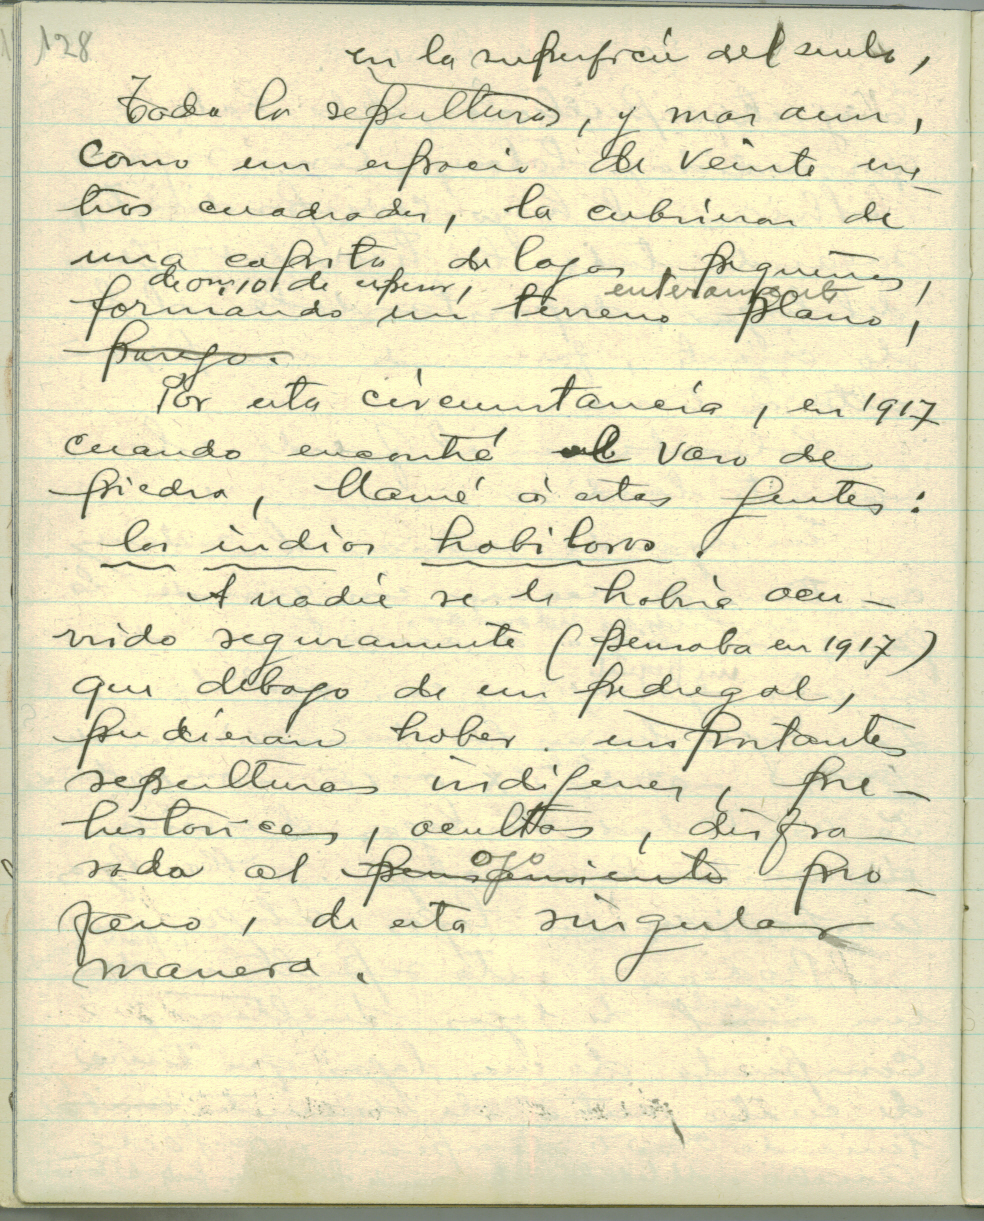 128
en la superficie del suelo,
Toda la sepultura, y mas aun,
como un espacio de veinte me-
tros cuadrados, la cubrieron de
una capita de lajas pequeñas,
de 0m,10 de espesor, enteramente
formando un terreno plano,
parejo.
Por esta circunstancia, en 1917
cuando encontré el vaso de
piedra, llamé á estas gentes:
los indios habilosos.
A nadie se le habria ocu-
rrido seguramente (pensaba en 1917)
que debajo de un pedregal,
pudieran haber importantes
sepulturas indígenas, pre-
historicas, ocultas, disfra-
sada al pensamiento ojo pro-
fano, de esta singular
manera.